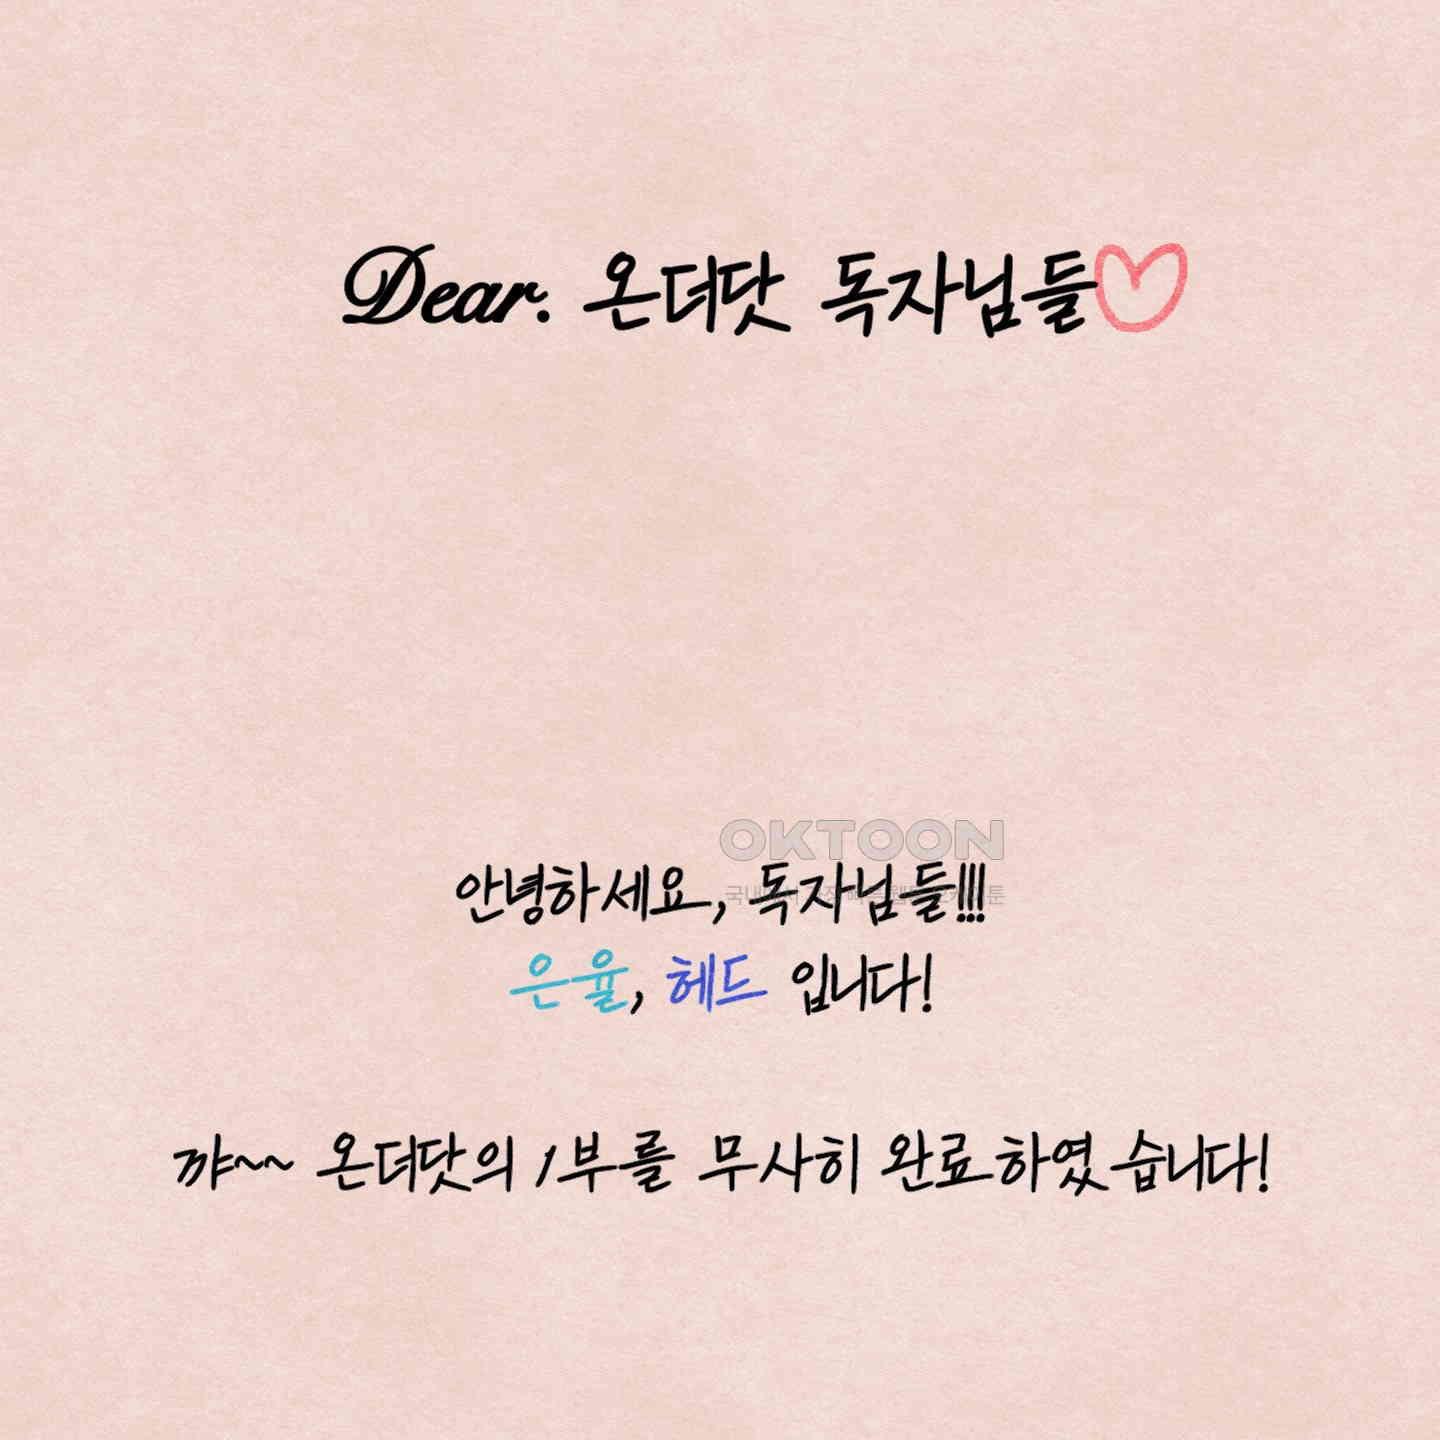 Dear. 온더닷 독자님들♡
OKTOON
안녕하세요, 독자님들!!!
은율, 헤드 입니다!
꺄~~ 온더닷의 1부를 무사히 완료하였습니다!